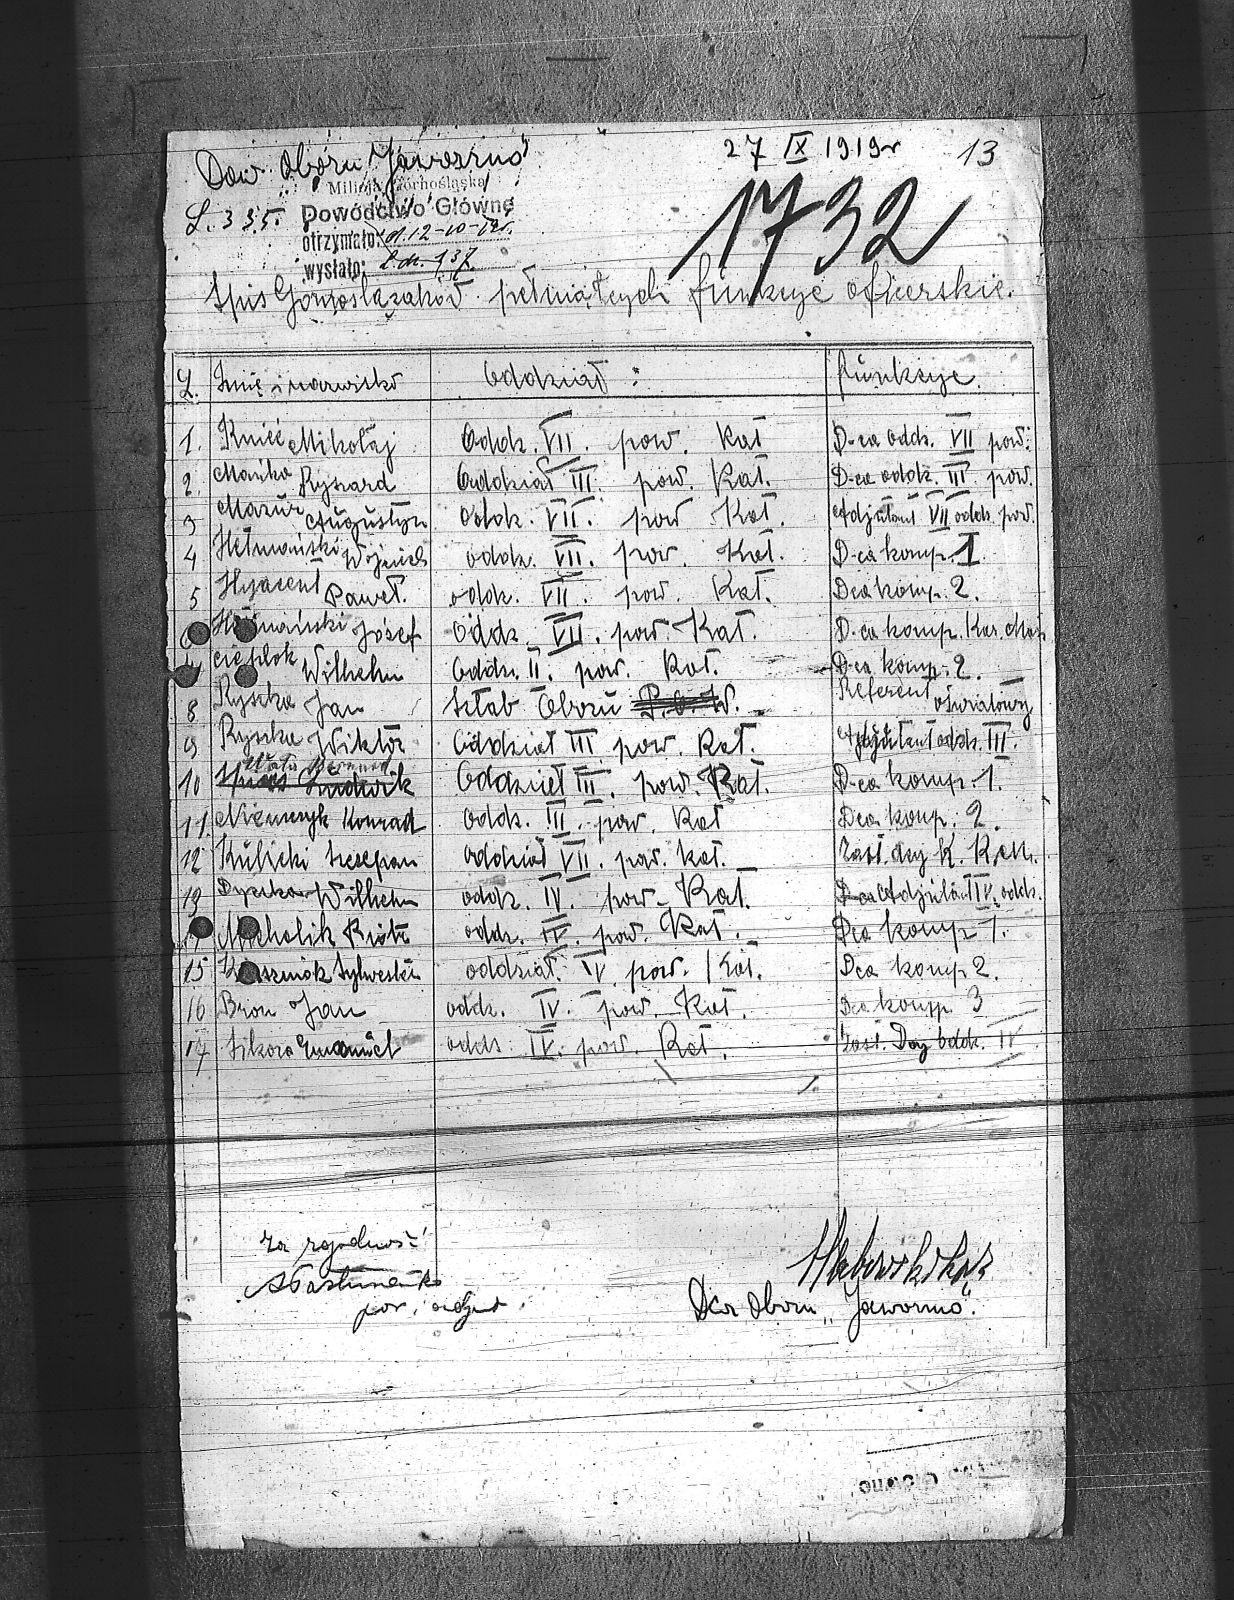 Dow. Obozu "Jaworzno"
27 IX 1919r
13
Milicja Górnośląska
L. 335.
Dowództwo Główne
otrzymało: d. 12-10-19r.
wysłało: L.dz. 137.
1732
Spis Górnoślązaków pełniących funkcye oficerskie.
L. Imię i nazwisko Oddział: funkcye
1. Knieć Mikołaj Oddz. VII. pow. Kat D-ca oddz. VII pow.
2. Mańka Ryszard Oddział III. pow. Kat. D-ca oddz. III pow.
3 Mazur Augustyn oddz. VII. pow Kat. Adjutant VII oddz. pow.
4 Wojciech oddz. VII. pow. Kat. D-ca komp. 1
5 Hyacent Paweł. oddz. VII. pow. Kat. Dca komp. 2.
6 Józef Oddz. VII. pow. Kat. D-ca komp. Kar. Masz
7 Cieplok Wilhelm Oddz. II. pow. Kat. D-ca komp. 2.
8 Ryszka Jan Sztab Obozu P.O.W. Referent oświatowy
9 Ryszka Wiktor Oddział III. pow. Kat. Adjutant oddz. III.
10 Ludwik Oddział III. pow. Kat. D-ca komp. 1.
11. Niemczyk Konrad oddz. III. pow. Kat Dca komp. 2.
12 Kulicki Szczepan oddział VII. pow. Kat. Zast. dcy K. K.M.
13 Wilhelm oddz. IV. pow. Kat. D-ca Adjutant IV. oddz.
Michalik Piotr oddz. IV. pow. Kat. Dca komp 1.
15 Sylwester oddział. IV pow. Kat. Dca komp 2.
16 Bron Jan oddz. IV. pow. Kat. Dca komp. 3
17 Sikora Emanuel oddz. IV. pow. Kat. Zast. Dcy oddz. IV
za zgodność
por. adjut.
Dca Obozu "Jaworzno".